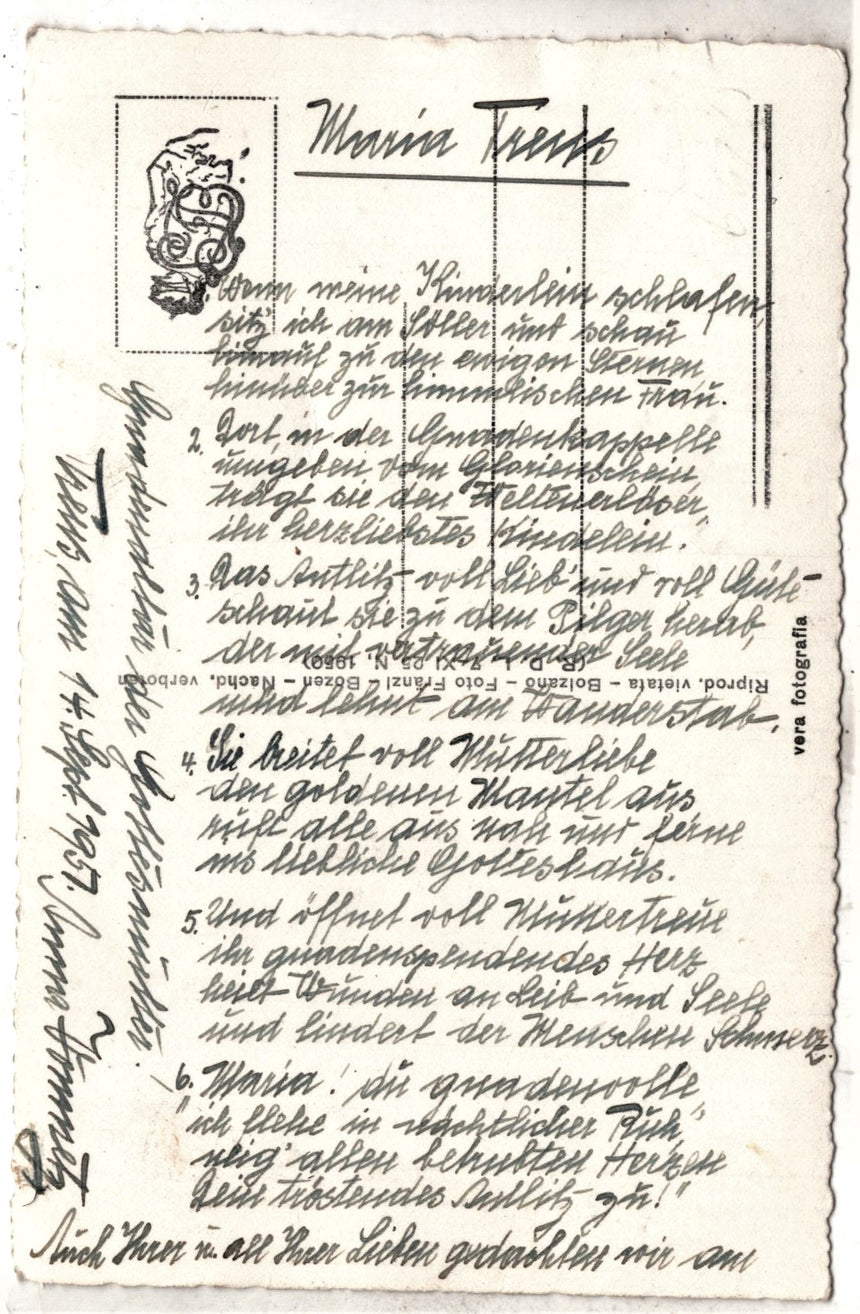 Maria Trens
Wenn meine Kinderlein schlafen,
sitz' ich am Söller und schau
hinauf zu den ewigen Sternen
hinüber zur himmlischen Frau.
2. Dort, in der Gnadenkappelle
umgeben vom Glorienschein,
trägt sie den Welterlöser,
ihr herzliebstes Kindelein.
3. Das Antlitz voll Lieb' und voll Güte
schaut sie zu dem Pilger herab,
der mit vertrauender Seele
und lehnt am Wanderstab.
4. Sie breitet voll Mutterliebe
den goldenen Mantel aus
ruft alle aus nah und ferne
ins liebliche Gotteshaus.
5. Und öffnet voll Muttertreue
ihr gnadenspendendes Herz
heilt Wunden an Leib und Seele
und lindert der Menschen Schmerz.
6. Maria! du gnadenvolle
"ich flehe in nächtlicher Ruh"
neig' allen betrübten Herzen
Dein tröstendes Antlitz zu!"
Auch Ihrer u. all Ihrer Lieben gedachten wir am
Gnadenaltar der Gottesmutter.
Trens, am 14. Sept. 1957. Anna
Riprod. vietata – Bolzano – Foto Fränzl – Bozen – Nachd. verboten
(R. D. L. 7-XI 25 N. 1950)
vera fotografia